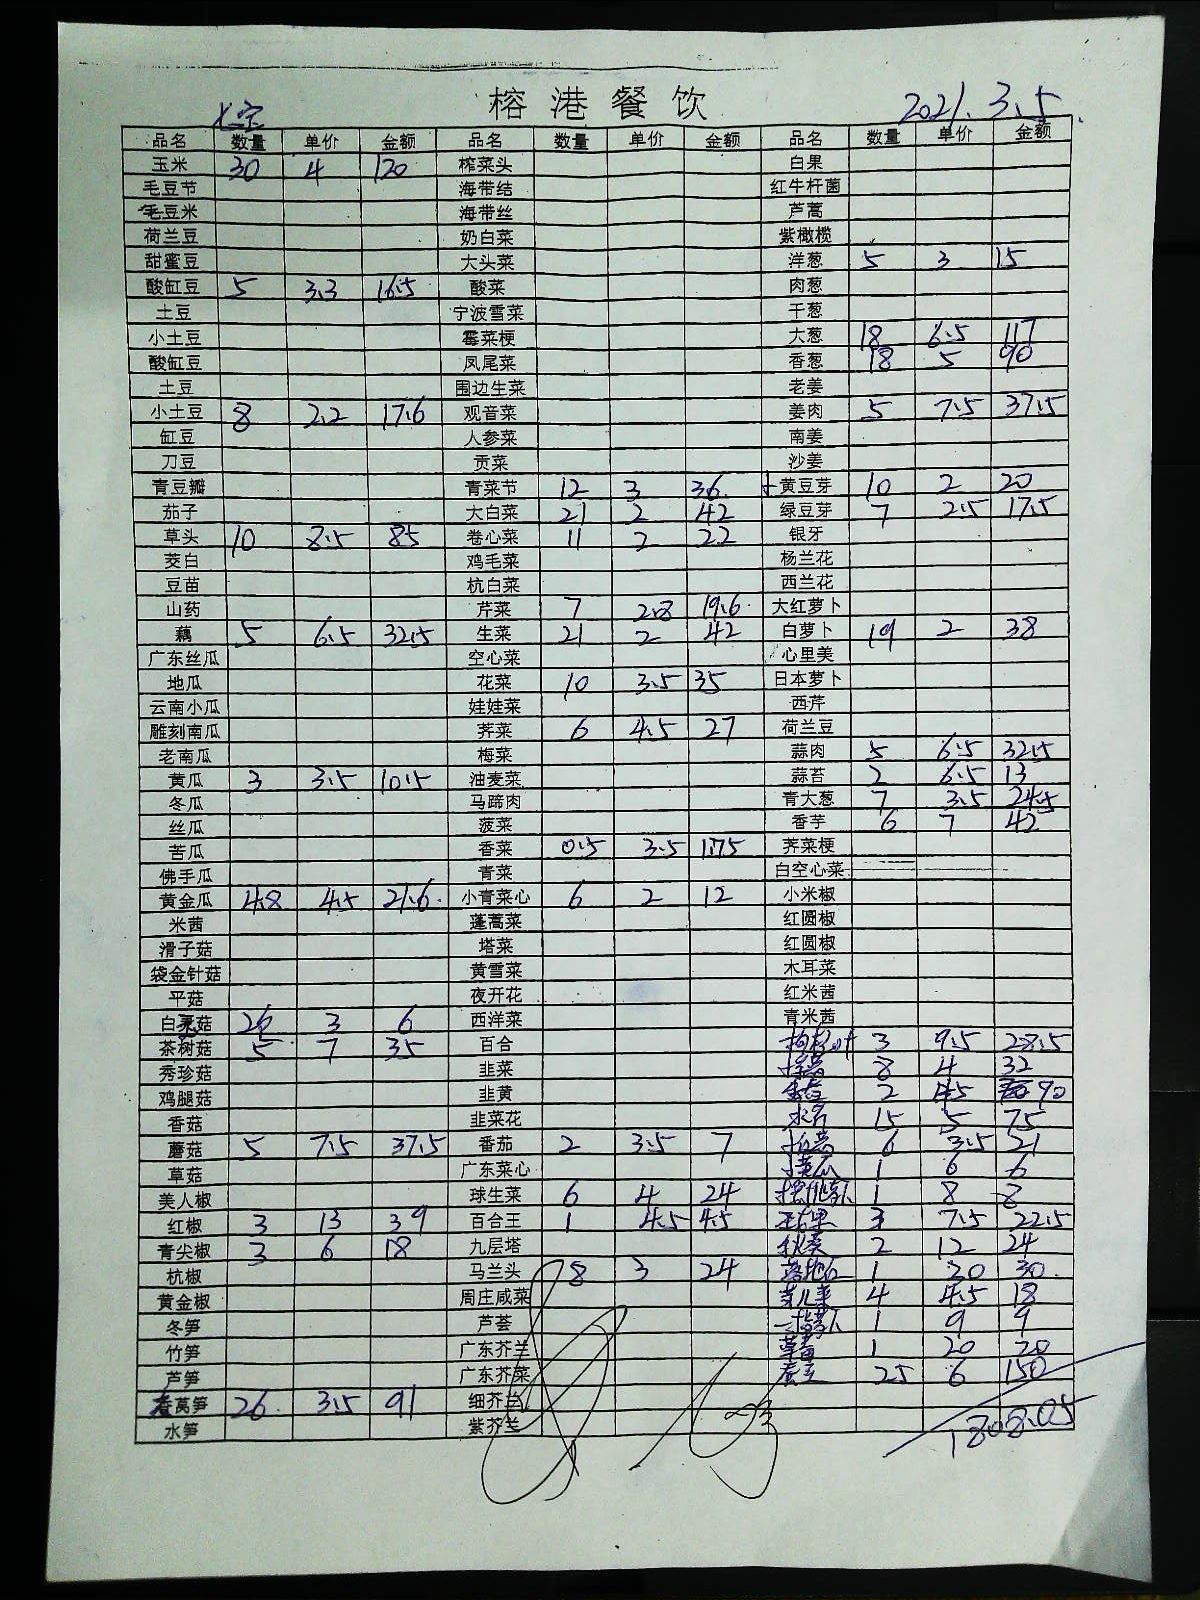 榕港餐饮
七宝 2021.3.5
品名 数量 单价 金额 品名 数量 单价 金额 品名 数量 单价 金额
玉米 30 4 120 榨菜头 白果
毛豆节 海带结 红牛杆菌
毛豆米 海带丝 芦蒿
荷兰豆 奶白菜 紫橄榄
甜蜜豆 大头菜 洋葱 5 3 15
酸缸豆 5 3.3 16.5 酸菜 肉葱
土豆 宁波雪菜 干葱
小土豆 霉菜梗 大葱 18 6.5 117
酸缸豆 凤尾菜 香葱 18 5 90
土豆 围边生菜 老姜
小土豆 8 2.2 17.6 观音菜 姜肉 5 7.5 37.5
缸豆 人参菜 南姜
刀豆 贡菜 沙姜
青豆瓣 青菜节 12 3 36 黄豆芽 10 2 20
茄子 大白菜 21 2 42 绿豆芽 7 2.5 17.5
草头 10 8.5 85 卷心菜 11 2 22 银牙
茭白 鸡毛菜 杨兰花
豆苗 杭白菜 西兰花
山药 芹菜 7 2.8 19.6 大红萝卜
藕 5 6.5 32.5 生菜 21 2 42 白萝卜 19 2 38
广东丝瓜 空心菜 心里美
地瓜 花菜 10 3.5 35 日本萝卜
云南小瓜 娃娃菜 西芹
雕刻南瓜 荠菜 6 4.5 27 荷兰豆
老南瓜 梅菜 蒜肉 5 6.5 32.5
黄瓜 3 3.5 10.5 油麦菜 蒜苔 2 6.5 13
冬瓜 马蹄肉 青大葱 7 3.5 24.5
丝瓜 菠菜 香芋 6 7 42
苦瓜 香菜 0.5 3.5 1.75 荠菜梗
佛手瓜 青菜 白空心菜
黄金瓜 4.8 4.5 21.6 小青菜心 6 2 12 小米椒
米茜 蓬蒿菜 红圆椒
滑子菇 塔菜 红圆椒
袋金针菇 黄雪菜 木耳菜
平菇 夜开花 红米茜
白灵菇 26 3 6 西洋菜 青米茜
茶树菇 5 7 35 百合 3 9.5 28.5
秀珍菇 韭菜 8 4 32
鸡腿菇 韭黄 2 45 90
香菇 韭菜花 15 5 75
蘑菇 5 7.5 37.5 番茄 2 3.5 7 6 3.5 21
草菇 广东菜心 1 6 6
美人椒 球生菜 6 4 24 1 8 8
红椒 3 13 39 百合王 1 4.5 4.5 3 7.5 22.5
青尖椒 3 6 18 九层塔 秋葵 2 12 24
杭椒 马兰头 8 3 24 1 30 30
黄金椒 周庄咸菜 芽儿菜 4 4.5 18
冬笋 芦荟 1 9 9
竹笋 广东芥兰 草莓 1 20 20
芦笋 广东芥菜 蚕豆 25 6 150
莴笋 26 3.5 91 细芥兰
水笋 紫芥兰 1808.05